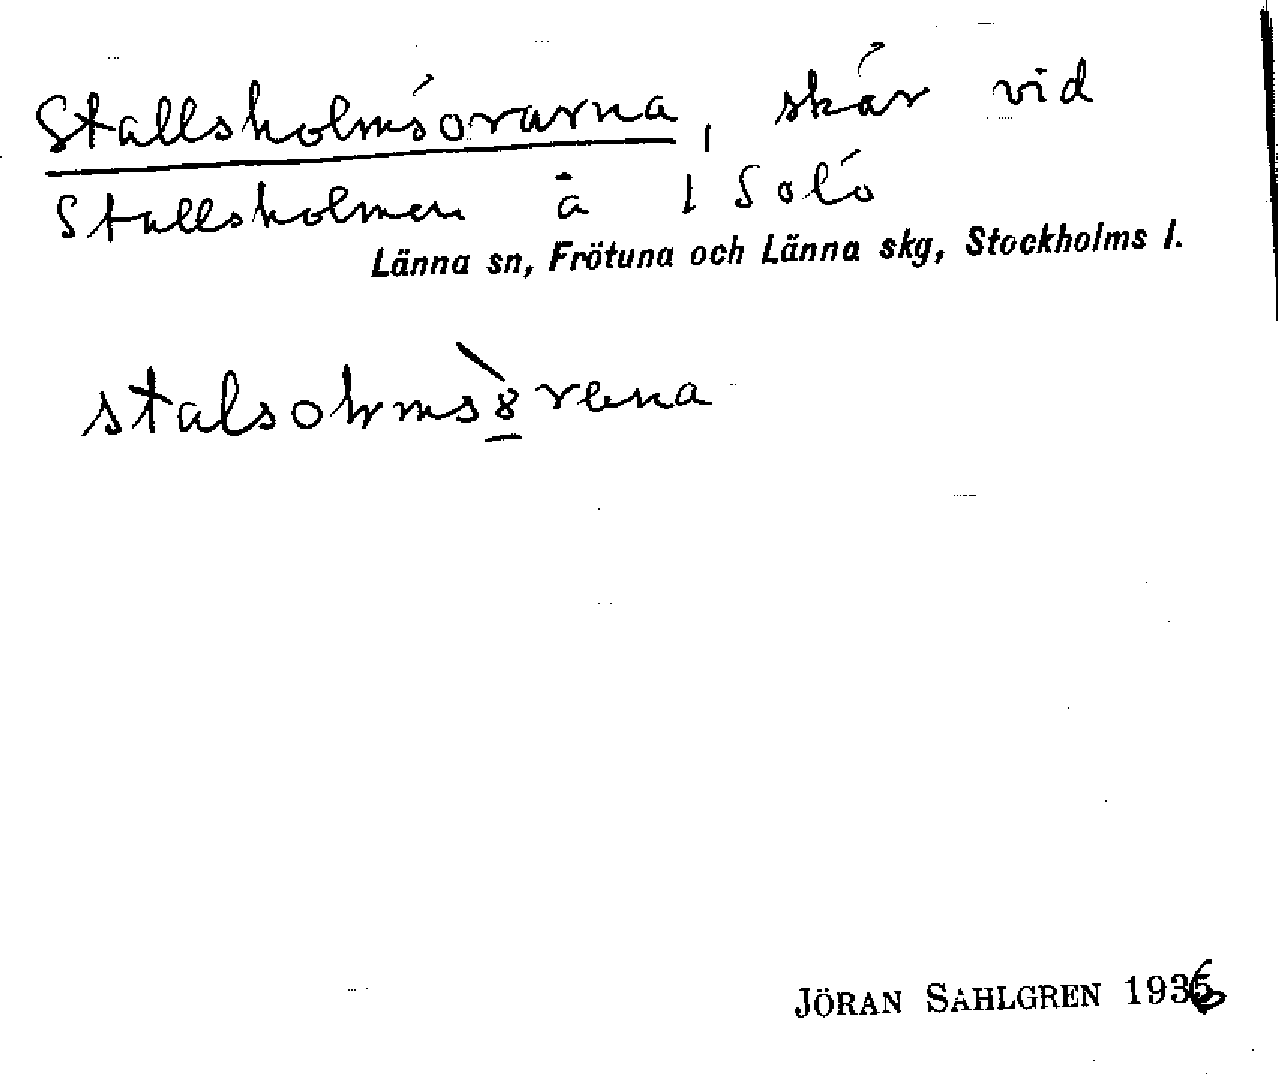 Stallsholmsörarna, skär vid
Stallsholmen å
Länna sn, Frötuna och Länna skg, Stockholms l.
JÖRAN SAHLGREN 1936